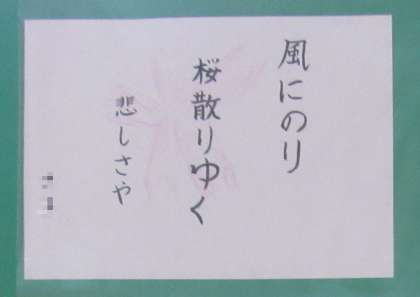 風にのり
桜散りゆく
悲しさや